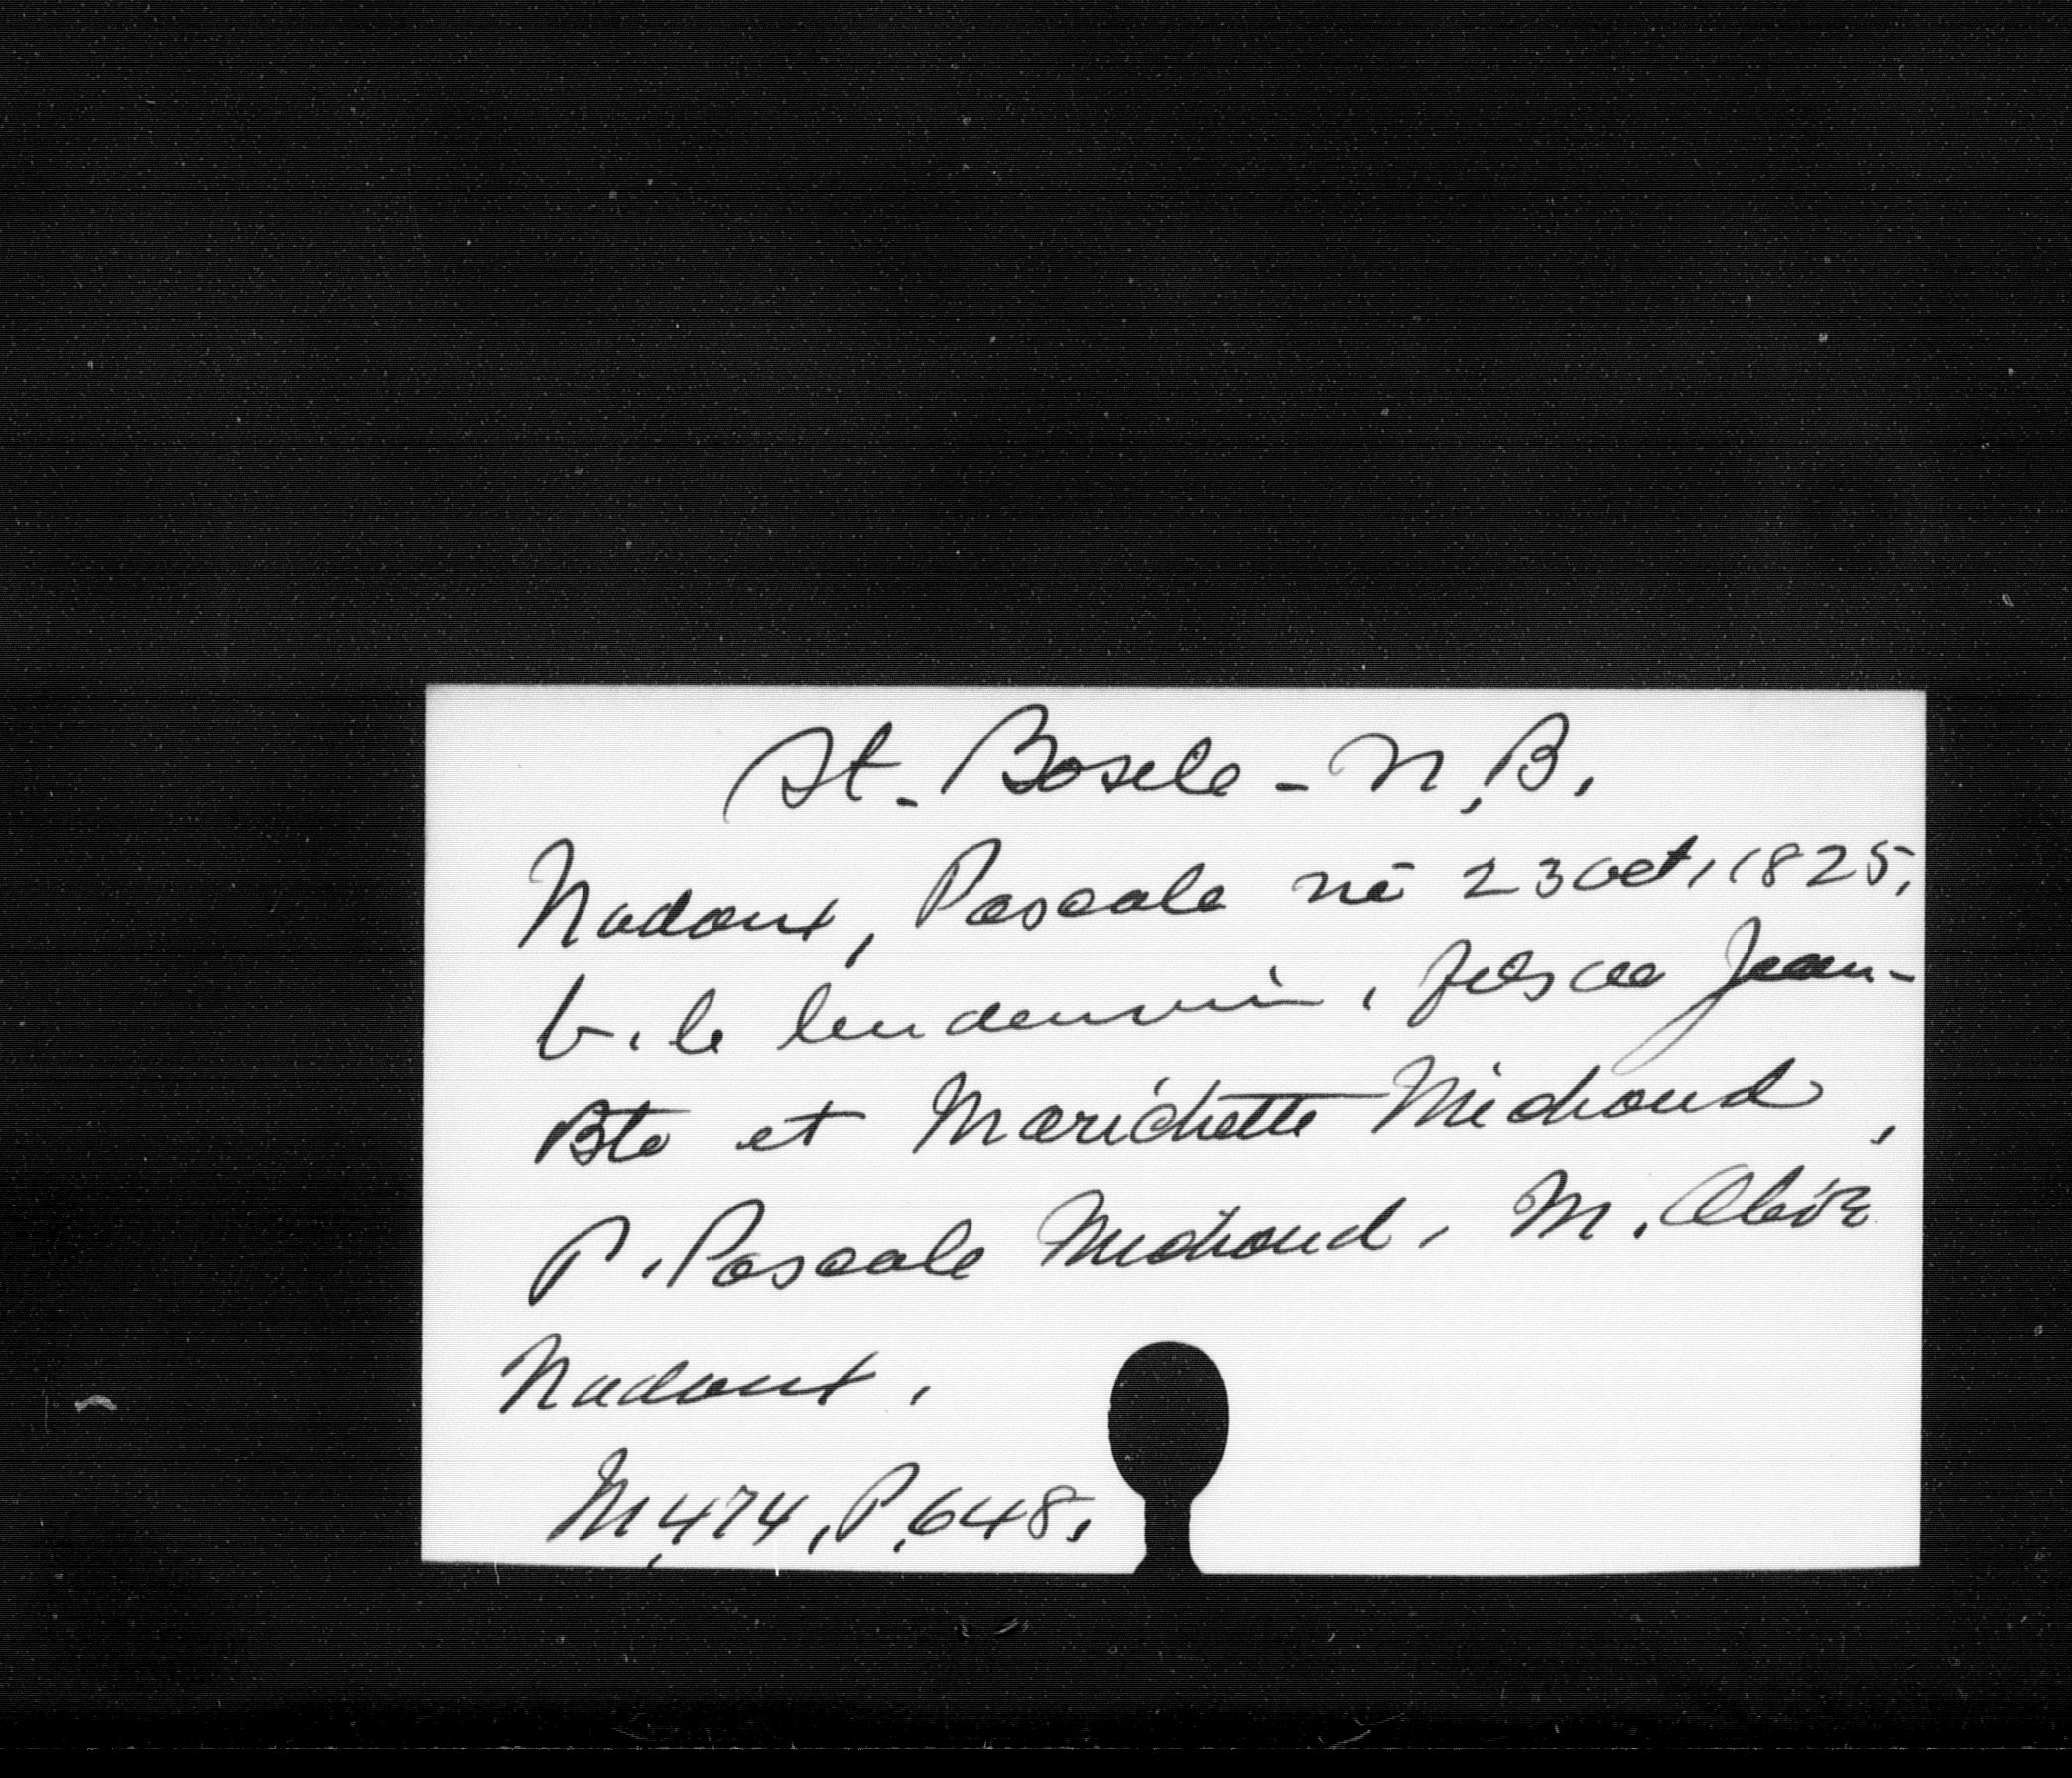 St. Bosile - N.B.
Nadaux, Pascale né 23 oct, 1825,
b. le lendemain, fils de Jean-
Bte et Marichette Michaud,
P. Pascale Michaud, M. Olive
Nadaux,
M, 474, P. 648,